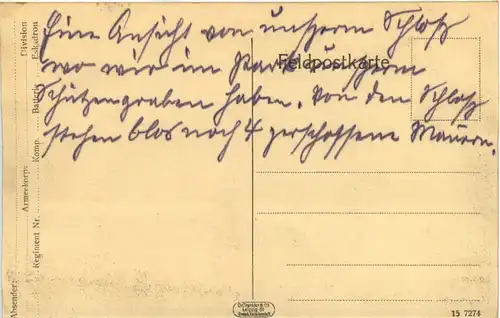 Eine Ansicht von unserm Schloß
wo wir im Park unserm
Feldpostkarte
Schützengraben haben. Von den Schloß
stehen blos noch 4 zerschossene Mauern.
Absender:
Regiment Nr. Komp. Batterie Eskadron
Armeekorps Division
15 7274